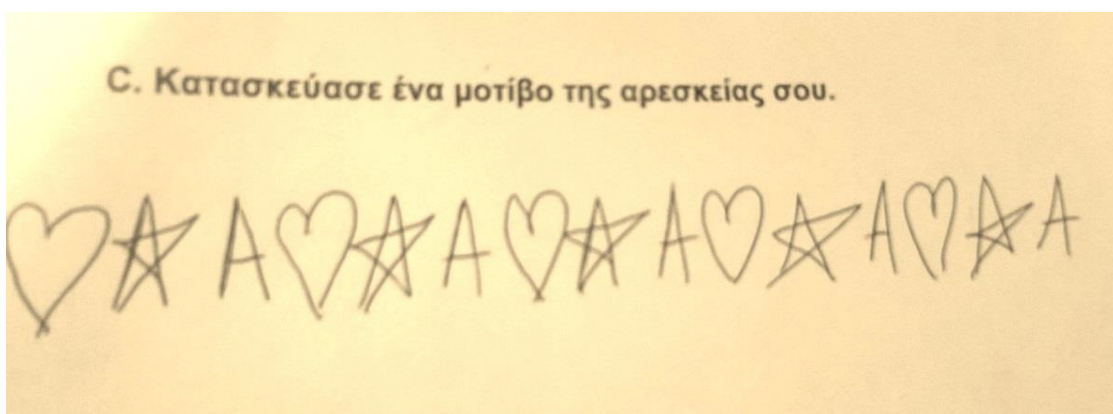 C. Κατασκεύασε ένα μοτίβο της αρεσκείας σου.
♡ ☆ A ♡ ☆ A ♡ ☆ A ♡ ☆ A ♡ ☆ A